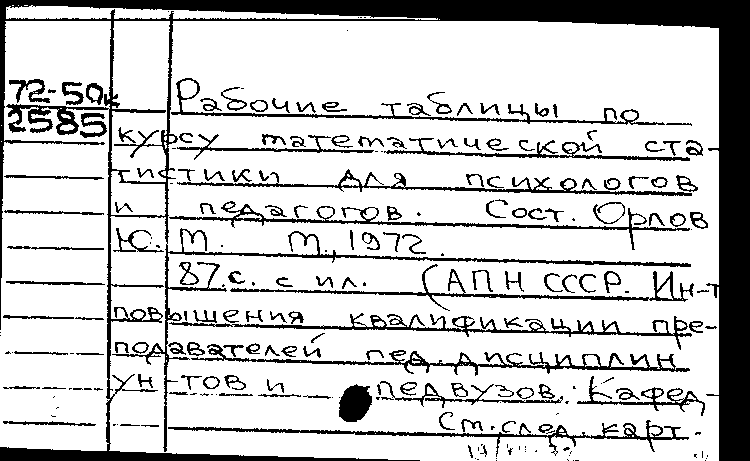 72-50к
2585
Рабочие таблицы по
курсу математической ста-
тистики для психологов
и педагогов. Сост. Орлов
Ю. М. М., 1972.
87 с. с ил. (АПН СССР. Ин-т
повышения квалификации пре-
подавателей пед. дисциплин
ун-тов и педвузов. Кафед-
См. след. карт.